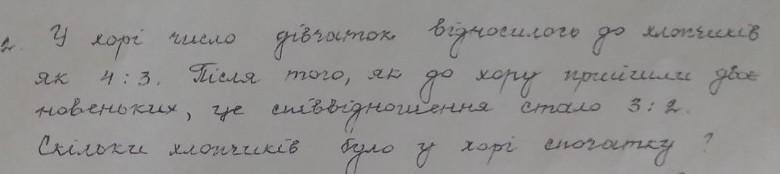 2. У хорі число дівчаток відносилось до хлопчиків
як 4:3. Після того, як до хору прийшли двоє
новеньких, це співвідношення стало 3:2.
Скільки хлопчиків було у хорі спочатку?